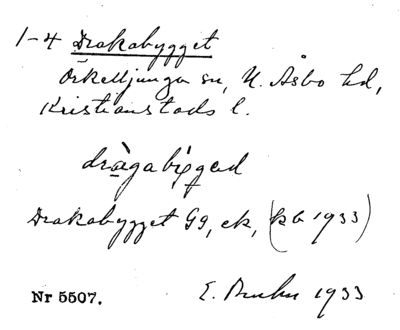 1-4 Drakabygget
Örkelljunga sn, N. Åsbo hd,
Kristianstads l.
dràgabig̨əd
Drakabygget Gg, ek, (kb 1933)
Nr 5507. E. 1933